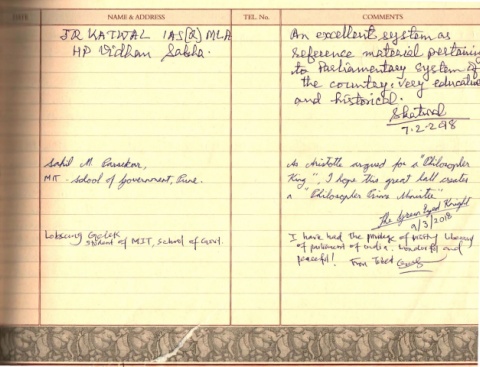 DATE NAME & ADDRESS TEL. No. COMMENTS
JR KATWAL IAS(R) MLA
HP Vidhan Sabha.
An excellent system as
reference material pertaining
to Parliamentary System of
the country, very educative
and historical.
7.2.298
Sahil M.
MIT - School of Government, Pune.
As Aristotle argued for a "Philosopher
King", I hope this great hall creates
a "Philosopher Prime Minister"
The Green Eyed Knight
9/3/2018
Lobsang Gelek
student of MIT, school of Govt.
I have had the privilege of visiting Library
of parliament of India. wonderful and
peaceful! From Tibet